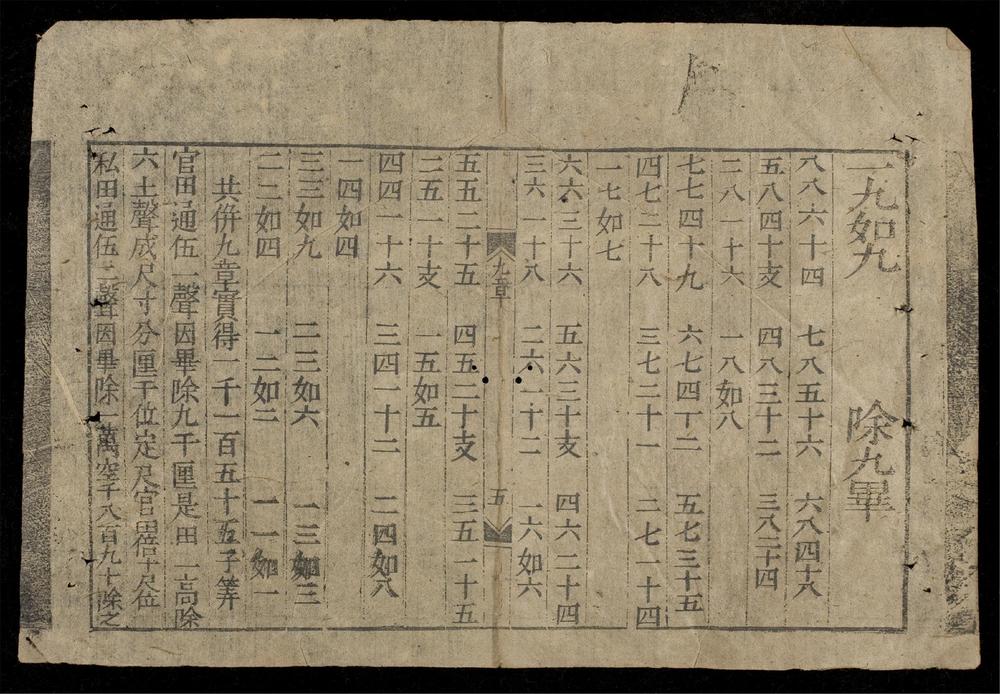 一九如九 除九畢
八八六十四 七八五十六 六八四十八
五八四十支 四八三十二 三八二十四
二八一十六 一八如八
七七四十九 六七四十二 五七三十五
四七二十八 三七二十一 二七一十四
一七如七
六六三十六 五六三十支 四六二十四
三六一十八 二六一十二 一六如六
九章 五
五五二十五 四五二十支 三五一十五
二五一十支 一五如五
四四一十六 三四一十二 二四如八
一四如四
三三如九 二三如六 一三如三
二二如四 一二如二 一一如一
共併九章實得一千一百五十五子筭
官田通伍一聲因畢除九千厘是田一高除
六土聲成尺寸分厘千位定尺官倍尺位
私田通伍二聲因畢除一萬空千八百九十除之